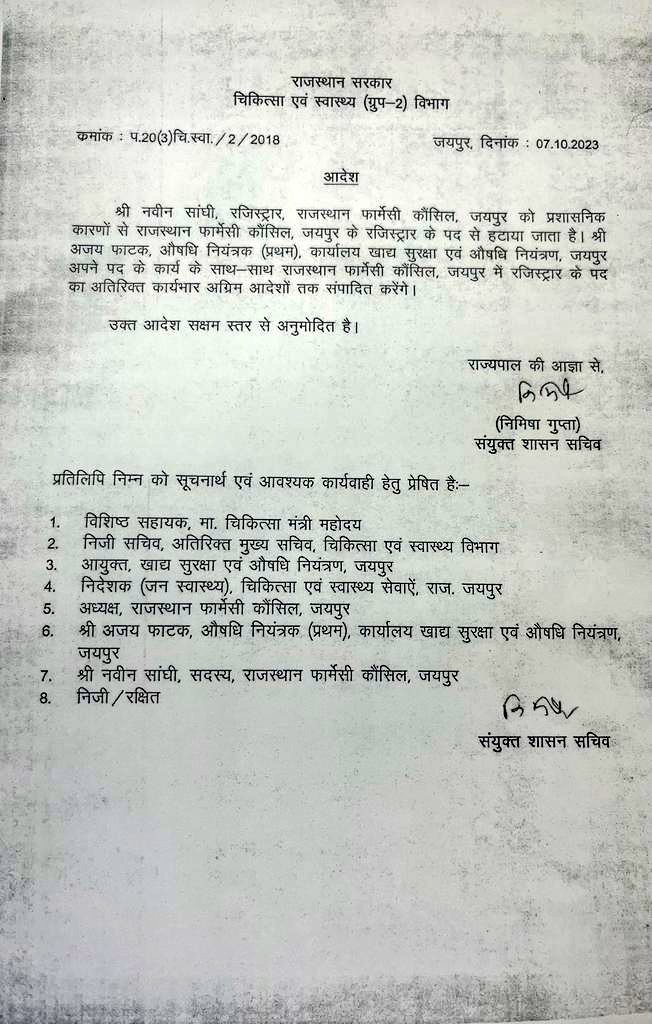 राजस्थान सरकार
चिकित्सा एवं स्वास्थ्य (ग्रुप–2) विभाग
कमांक : प.20(3)चि.स्वा./2/2018 जयपुर, दिनांक : 07.10.2023
आदेश
श्री नवीन सांघी, रजिस्ट्रार, राजस्थान फार्मेसी कौंसिल, जयपुर को प्रशासनिक
कारणों से राजस्थान फार्मेसी कौंसिल, जयपुर के रजिस्ट्रार के पद से हटाया जाता है। श्री
अजय फाटक, औषधि नियंत्रक (प्रथम), कार्यालय खाद्य सुरक्षा एवं औषधि नियंत्रण, जयपुर
अपने पद के कार्य के साथ–साथ राजस्थान फार्मेसी कौंसिल, जयपुर में रजिस्ट्रार के पद
का अतिरिक्त कार्यभार अग्रिम आदेशों तक संपादित करेंगे।
उक्त आदेश सक्षम स्तर से अनुमोदित है।
राज्यपाल की आज्ञा से,
(निमिषा गुप्ता)
संयुक्त शासन सचिव
प्रतिलिपि निम्न को सूचनार्थ एवं आवश्यक कार्यवाही हेतु प्रेषित हैः–
1. विशिष्ठ सहायक, मा. चिकित्सा मंत्री महोदय
2. निजी सचिव, अतिरिक्त मुख्य सचिव, चिकित्सा एवं स्वास्थ्य विभाग
3. आयुक्त, खाद्य सुरक्षा एवं औषधि नियंत्रण, जयपुर
4. निदेशक (जन स्वास्थ्य), चिकित्सा एवं स्वास्थ्य सेवाऐं, राज. जयपुर
5. अध्यक्ष, राजस्थान फार्मेसी कौंसिल, जयपुर
6. श्री अजय फाटक, औषधि नियंत्रक (प्रथम), कार्यालय खाद्य सुरक्षा एवं औषधि नियंत्रण,
जयपुर
7. श्री नवीन सांघी, सदस्य, राजस्थान फार्मेसी कौंसिल, जयपुर
8. निजी/रक्षित
संयुक्त शासन सचिव